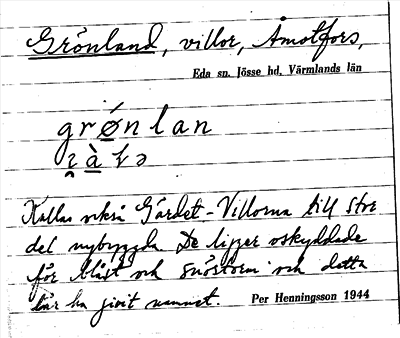 Grönland, villor, Åmotfors,
Eda sn. Jösse hd. Värmlands län
grǿnlan
Kallas också Gärdet-Villorna till stor
del nybyggda De ligger oskyddade
för blåst och snöstorm och detta
lär ha givit namnet. Per Henningsson 1944